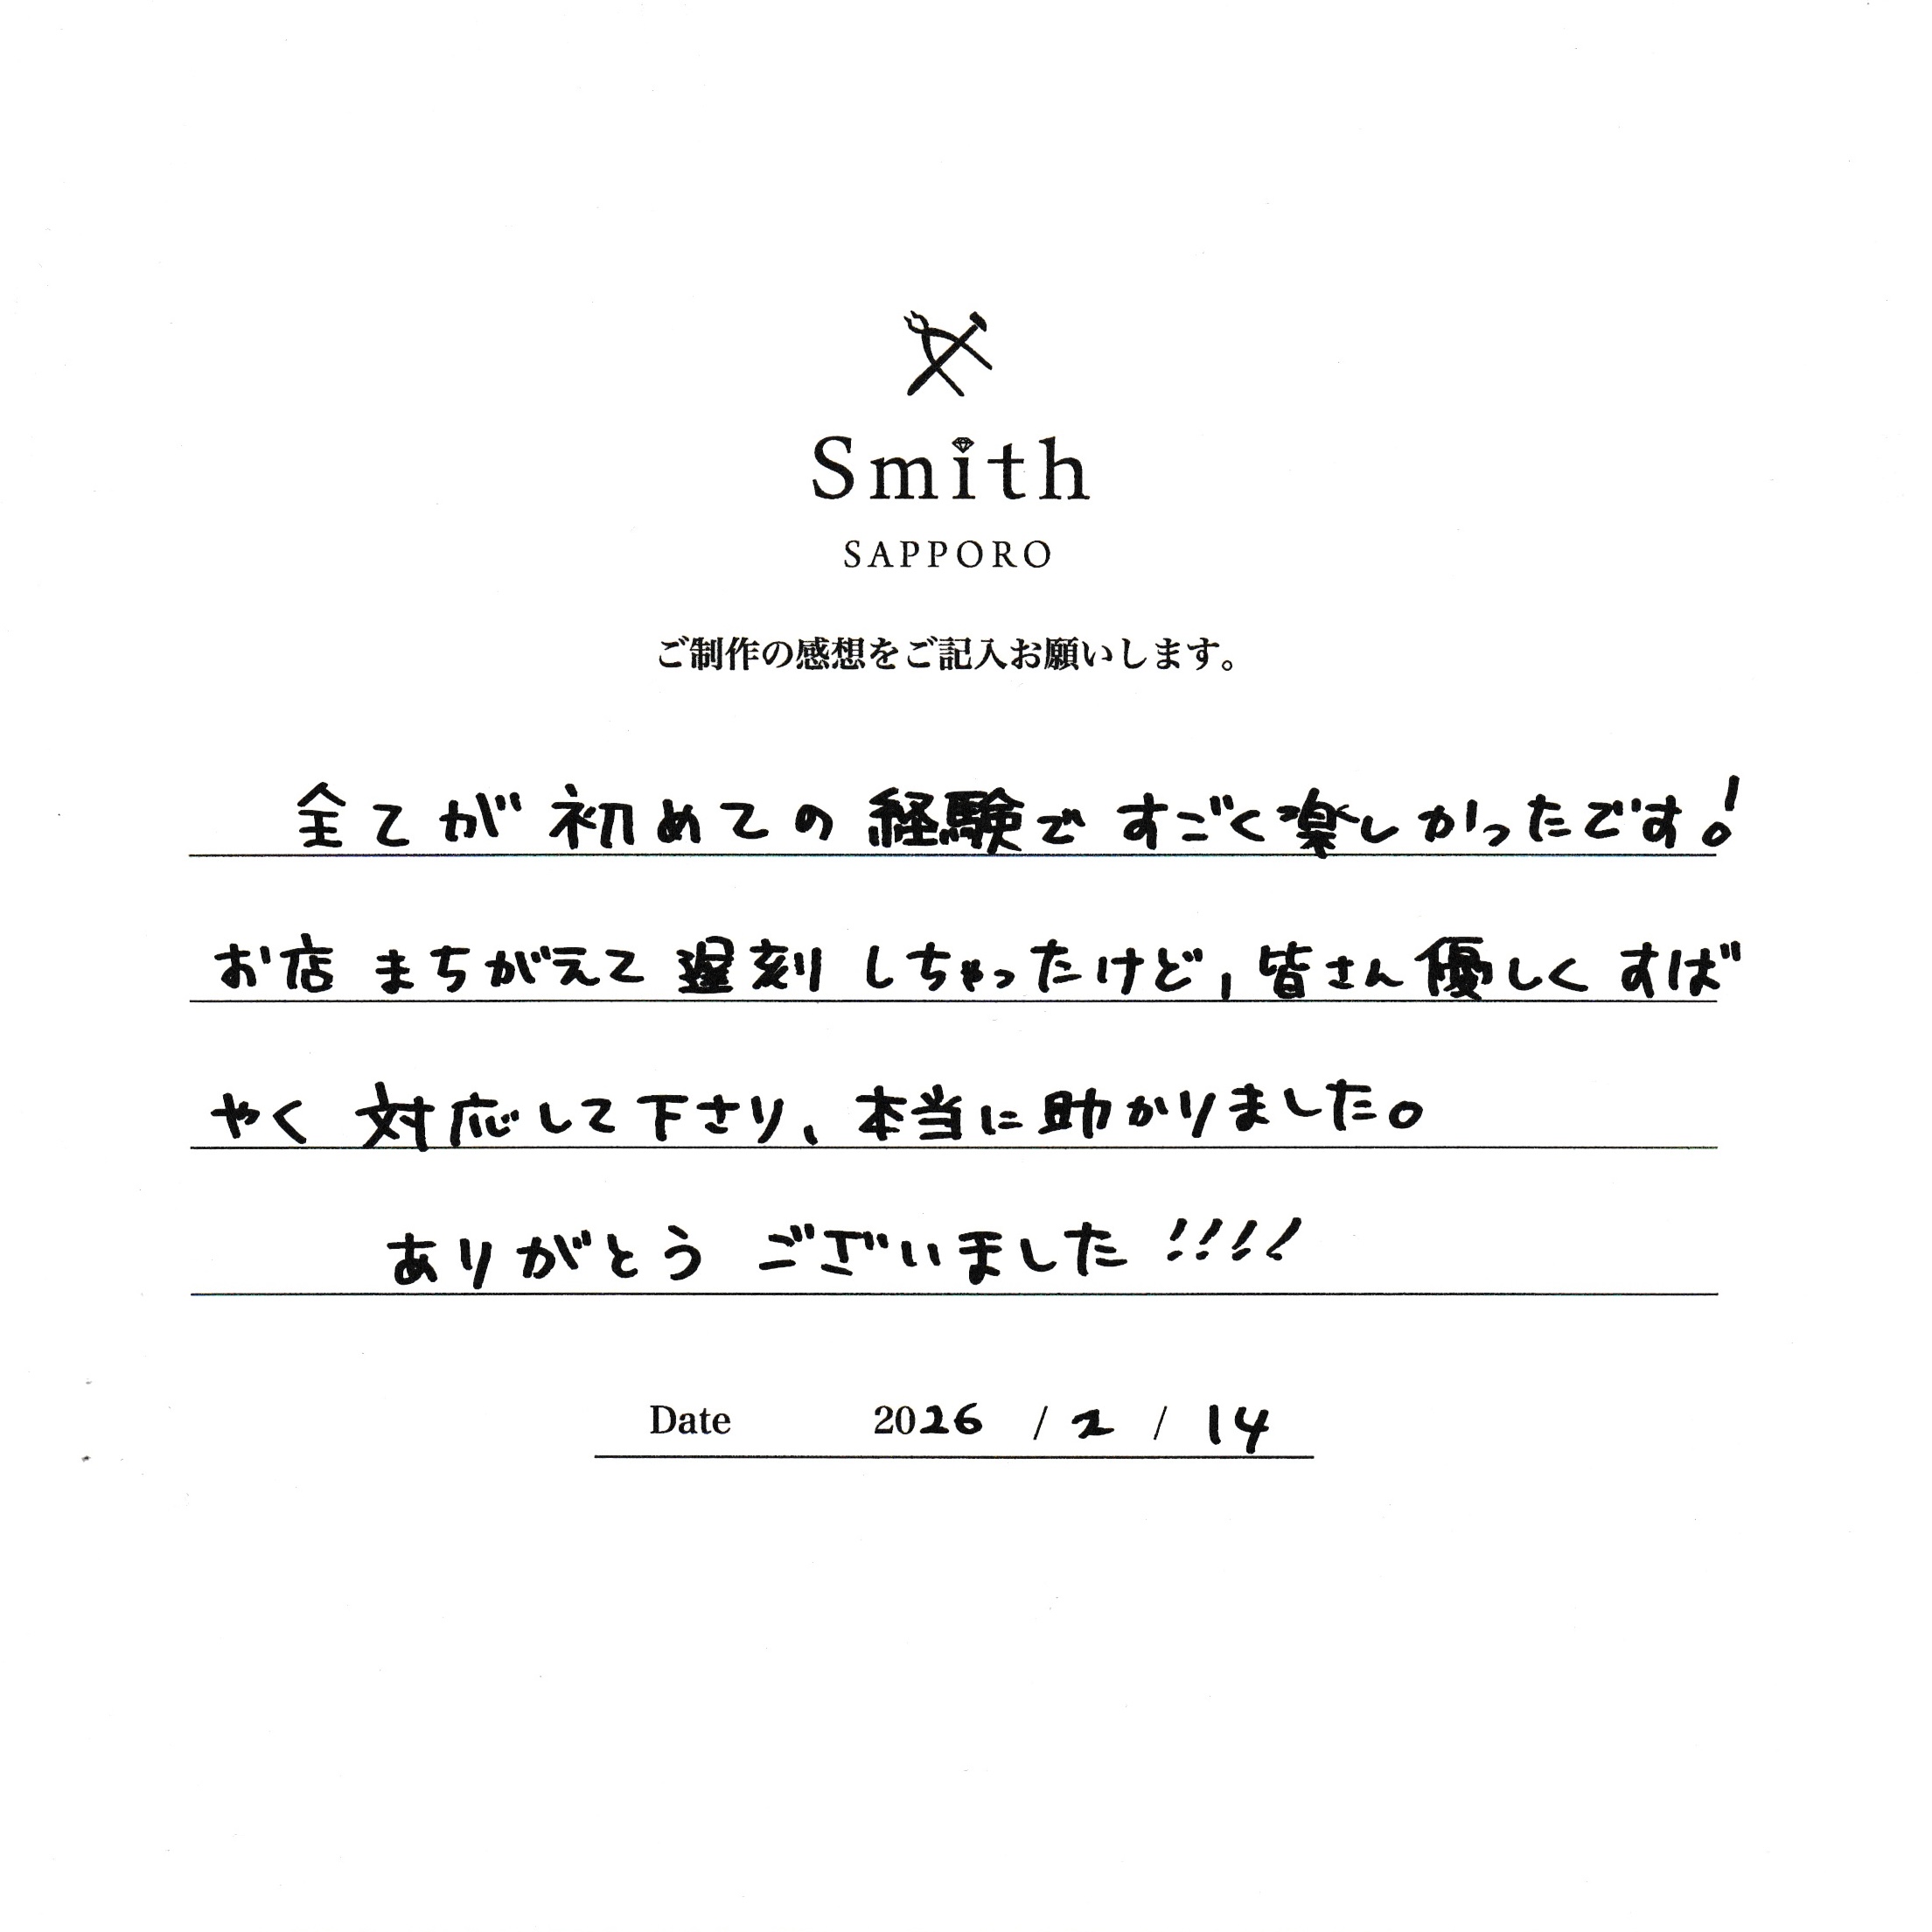 Smith
SAPPORO
ご制作の感想をご記入お願いします。
全てが初めての経験ですごく楽しかったです!
お店まちがえて遅刻しちゃったけど,皆さん優しくすば
やく対応して下さり、本当に助かりました。
ありがとうございました!!!!
Date 2026 / 2 / 14